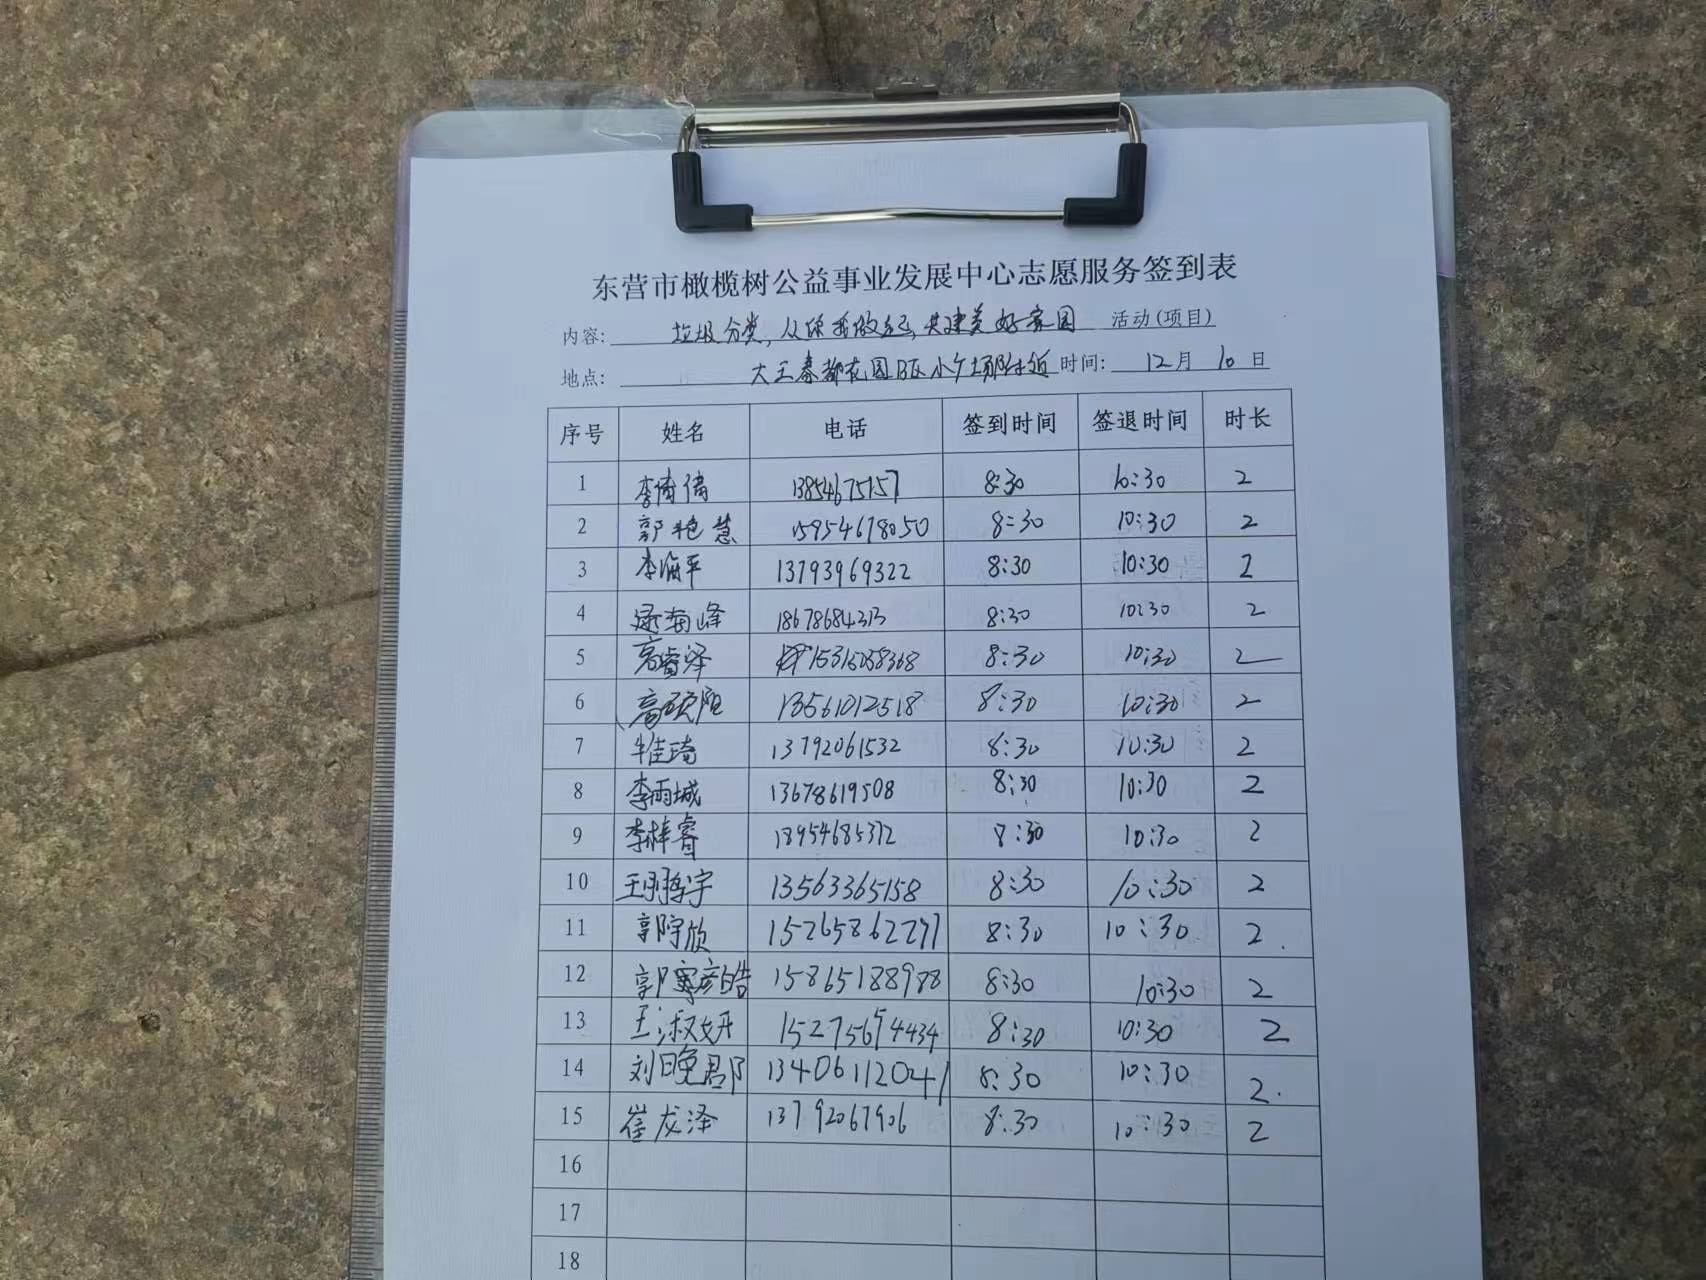 东营市橄榄树公益事业发展中心志愿服务签到表
内容: 垃圾分类,从你我做起,共建美好家园 活动(项目)
地点: 大王秦都花园B区小广场附近 时间: 12月 10日
序号 姓名 电话 签到时间 签退时间 时长
1 李倩倩 13854675157 8:30 10:30 2
2 郭艳慧 15954678050 8:30 10:30 2
3 李海平 13793969322 8:30 10:30 2
4 峰 8:30 10:30 2
5 高睿泽 15315058368 8:30 10:30 2
6 高硕阳 13561012518 8:30 10:30 2
7 牛佳琦 13792061532 8:30 10:30 2
8 李雨城 13678619508 8:30 10:30 2
9 李梓睿 13954685372 8:30 10:30 2
10 王明哲宇 13563365158 8:30 10:30 2
11 郭宇欣 15265862271 8:30 10:30 2.
12 郭寒彦皓 15865188988 8:30 10:30 2
13 王淑妍 15275674434 8:30 10:30 2
14 刘晚郡 13406112041 8:30 10:30 2.
15 崔龙泽 13792067906 8:30 10:30 2
16
17
18